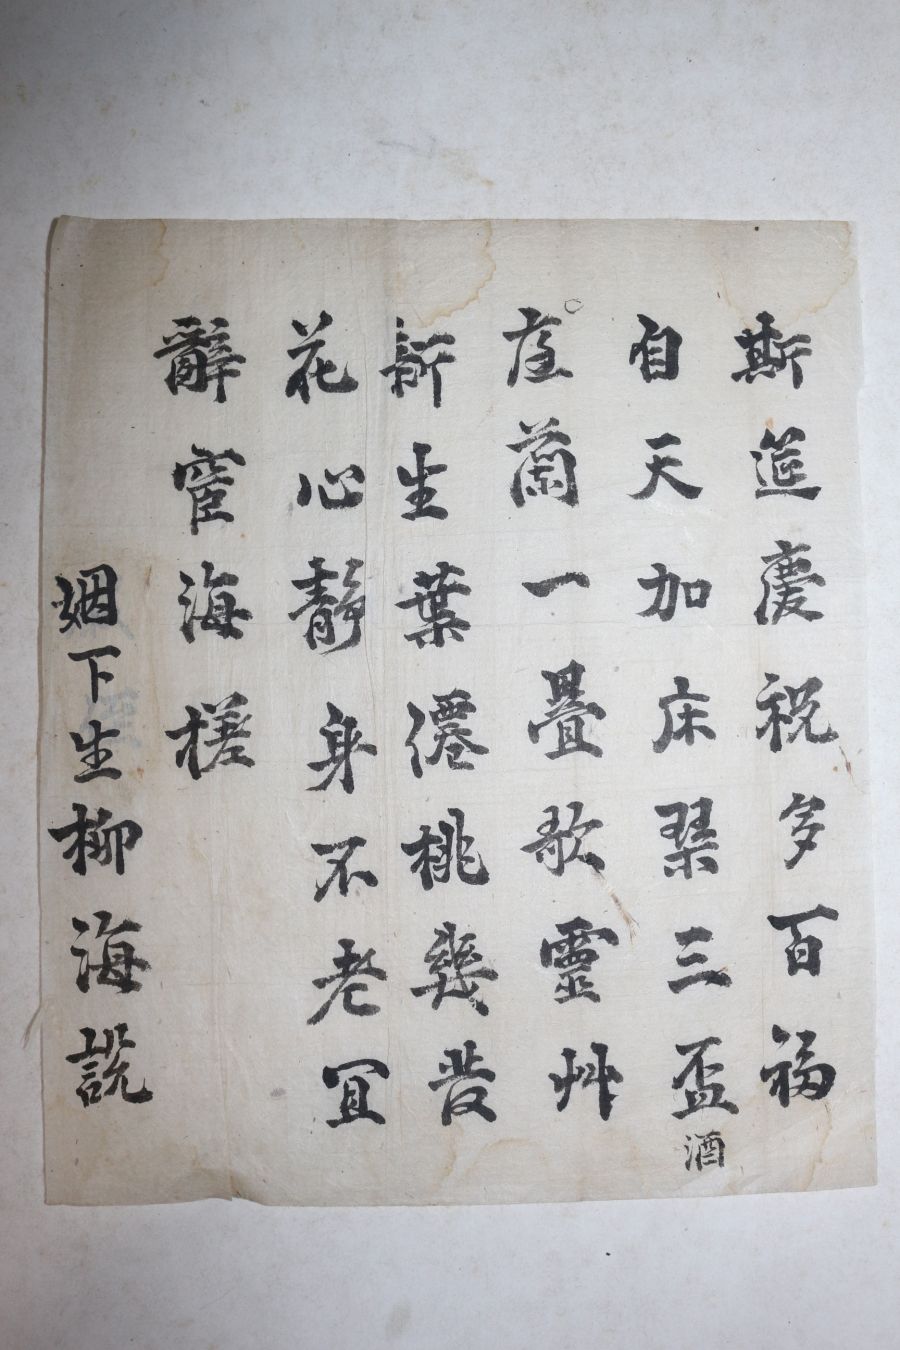 斯筵慶祝多百福
自天加床琹三盃酒
崖蘭一疊歌靈艸
新生葉僊桃幾發
花心靜身不老冝
辭宦海槎
姻下生柳海說